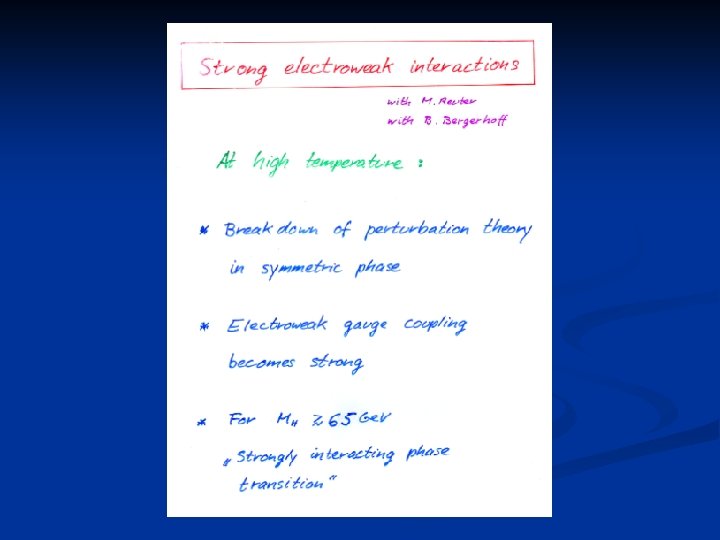 Strong electroweak interactions
with M. Reuter
with B. Bergerhoff
At high temperature :
* Breakdown of perturbation theory
in symmetric phase
* Electroweak gauge coupling
becomes strong
* For M_H ≳ 65 GeV
„Strongly interacting phase
transition“